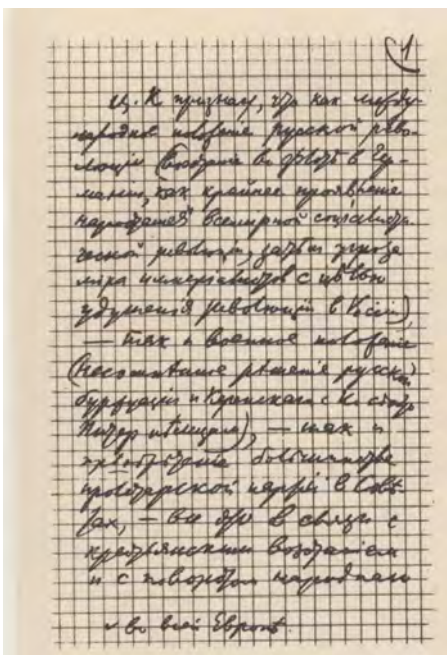 1
Ц. К. признает, что как между-
народное положение русской рево-
люции (восстание во флоте в Гер-
мании, как крайнее проявление
нарастания ˅ всемирной социалисти-
ческой революции, затем угроза
мира империалистов с целью
удушения революции в России),
— так и военное положение
(несомненное решение русской
буржуазии и Керенского с Ко сдать
Питер немцам), — так и
приобретение большинства
пролетарской партией в Сове-
тах, — все это в связи с
крестьянским восстанием
и с поворотом народнаго
˅ во всей Европе.